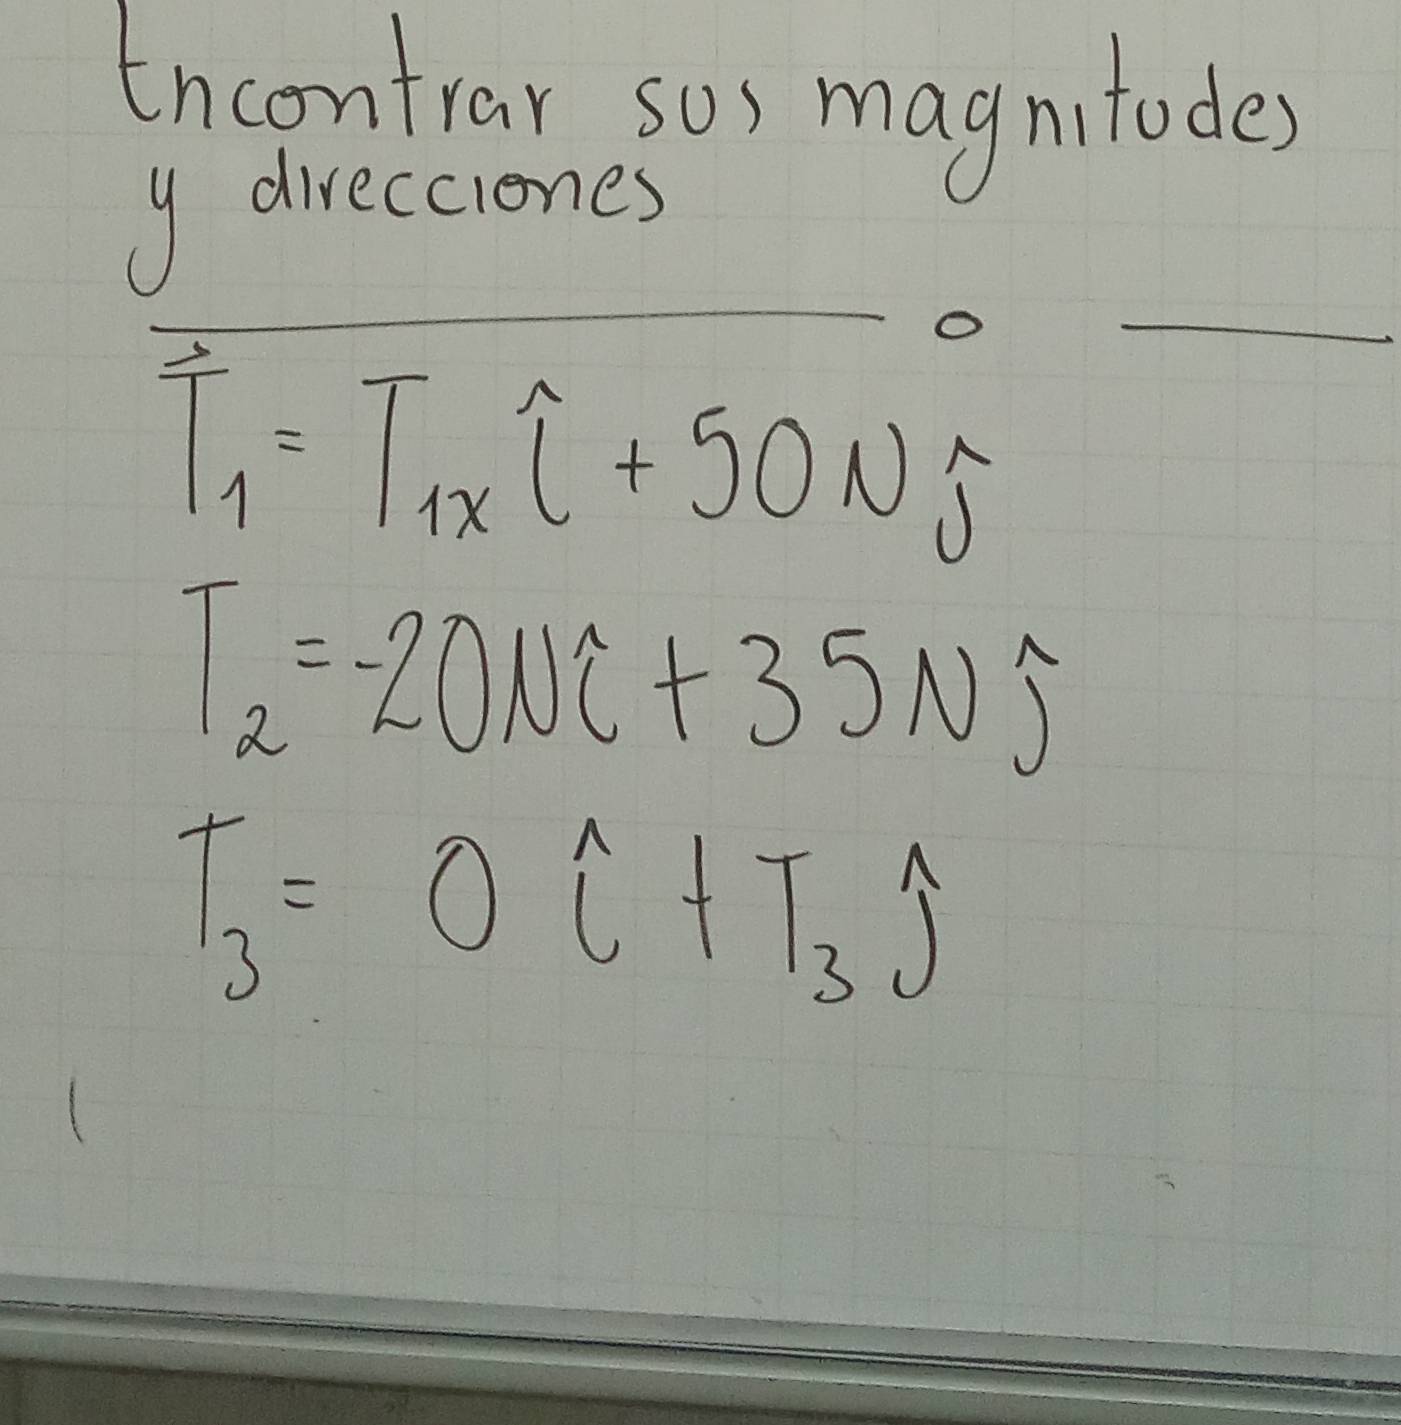 Encontrar sus magnitudes
y direcciones
T⃗₁ = T₁ₓ î + 50 N ĵ
T₂ = -20N î + 35 N ĵ
T₃ = 0 î + T₃ ĵ